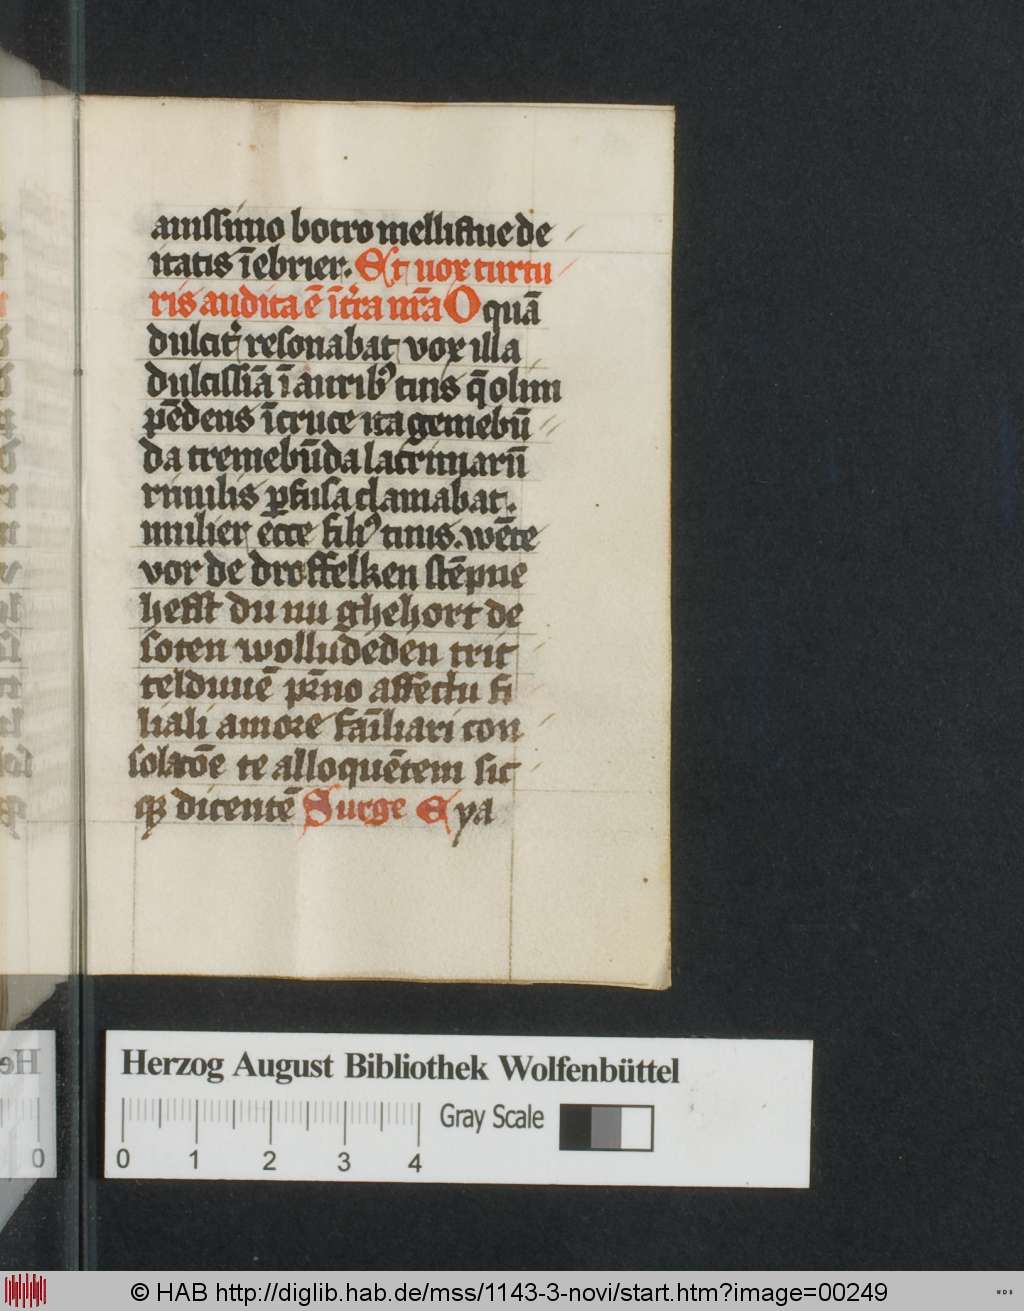 auissimo botro melliflue de
itatis īebrier. Et uox turtu
ris audita ē īt͛ra nr̄a O quā
dulcit͛ resonabat vox illa
dulcissīa ī aurib⁹ tuis q̄ olim
pēdens īcruce ita gemebū
da tremebūda lacrimarū
riuulis ꝑfusa clamabat.
mulier ecce fili⁹ tuus. wēte
vor de droffelken stēpne
hefft du nu ghehort de
soten wolludeden trit
telduuē pr̄no affectu fi
liali amore fāiliari con
te alloquētem sic
qꝫ dicentē Surge Eya
Herzog August Bibliothek Wolfenbüttel
Gray Scale
0 1 2 3 4
0
© HAB http://diglib.hab.de/mss/1143-3-novi/start.htm?image=00249